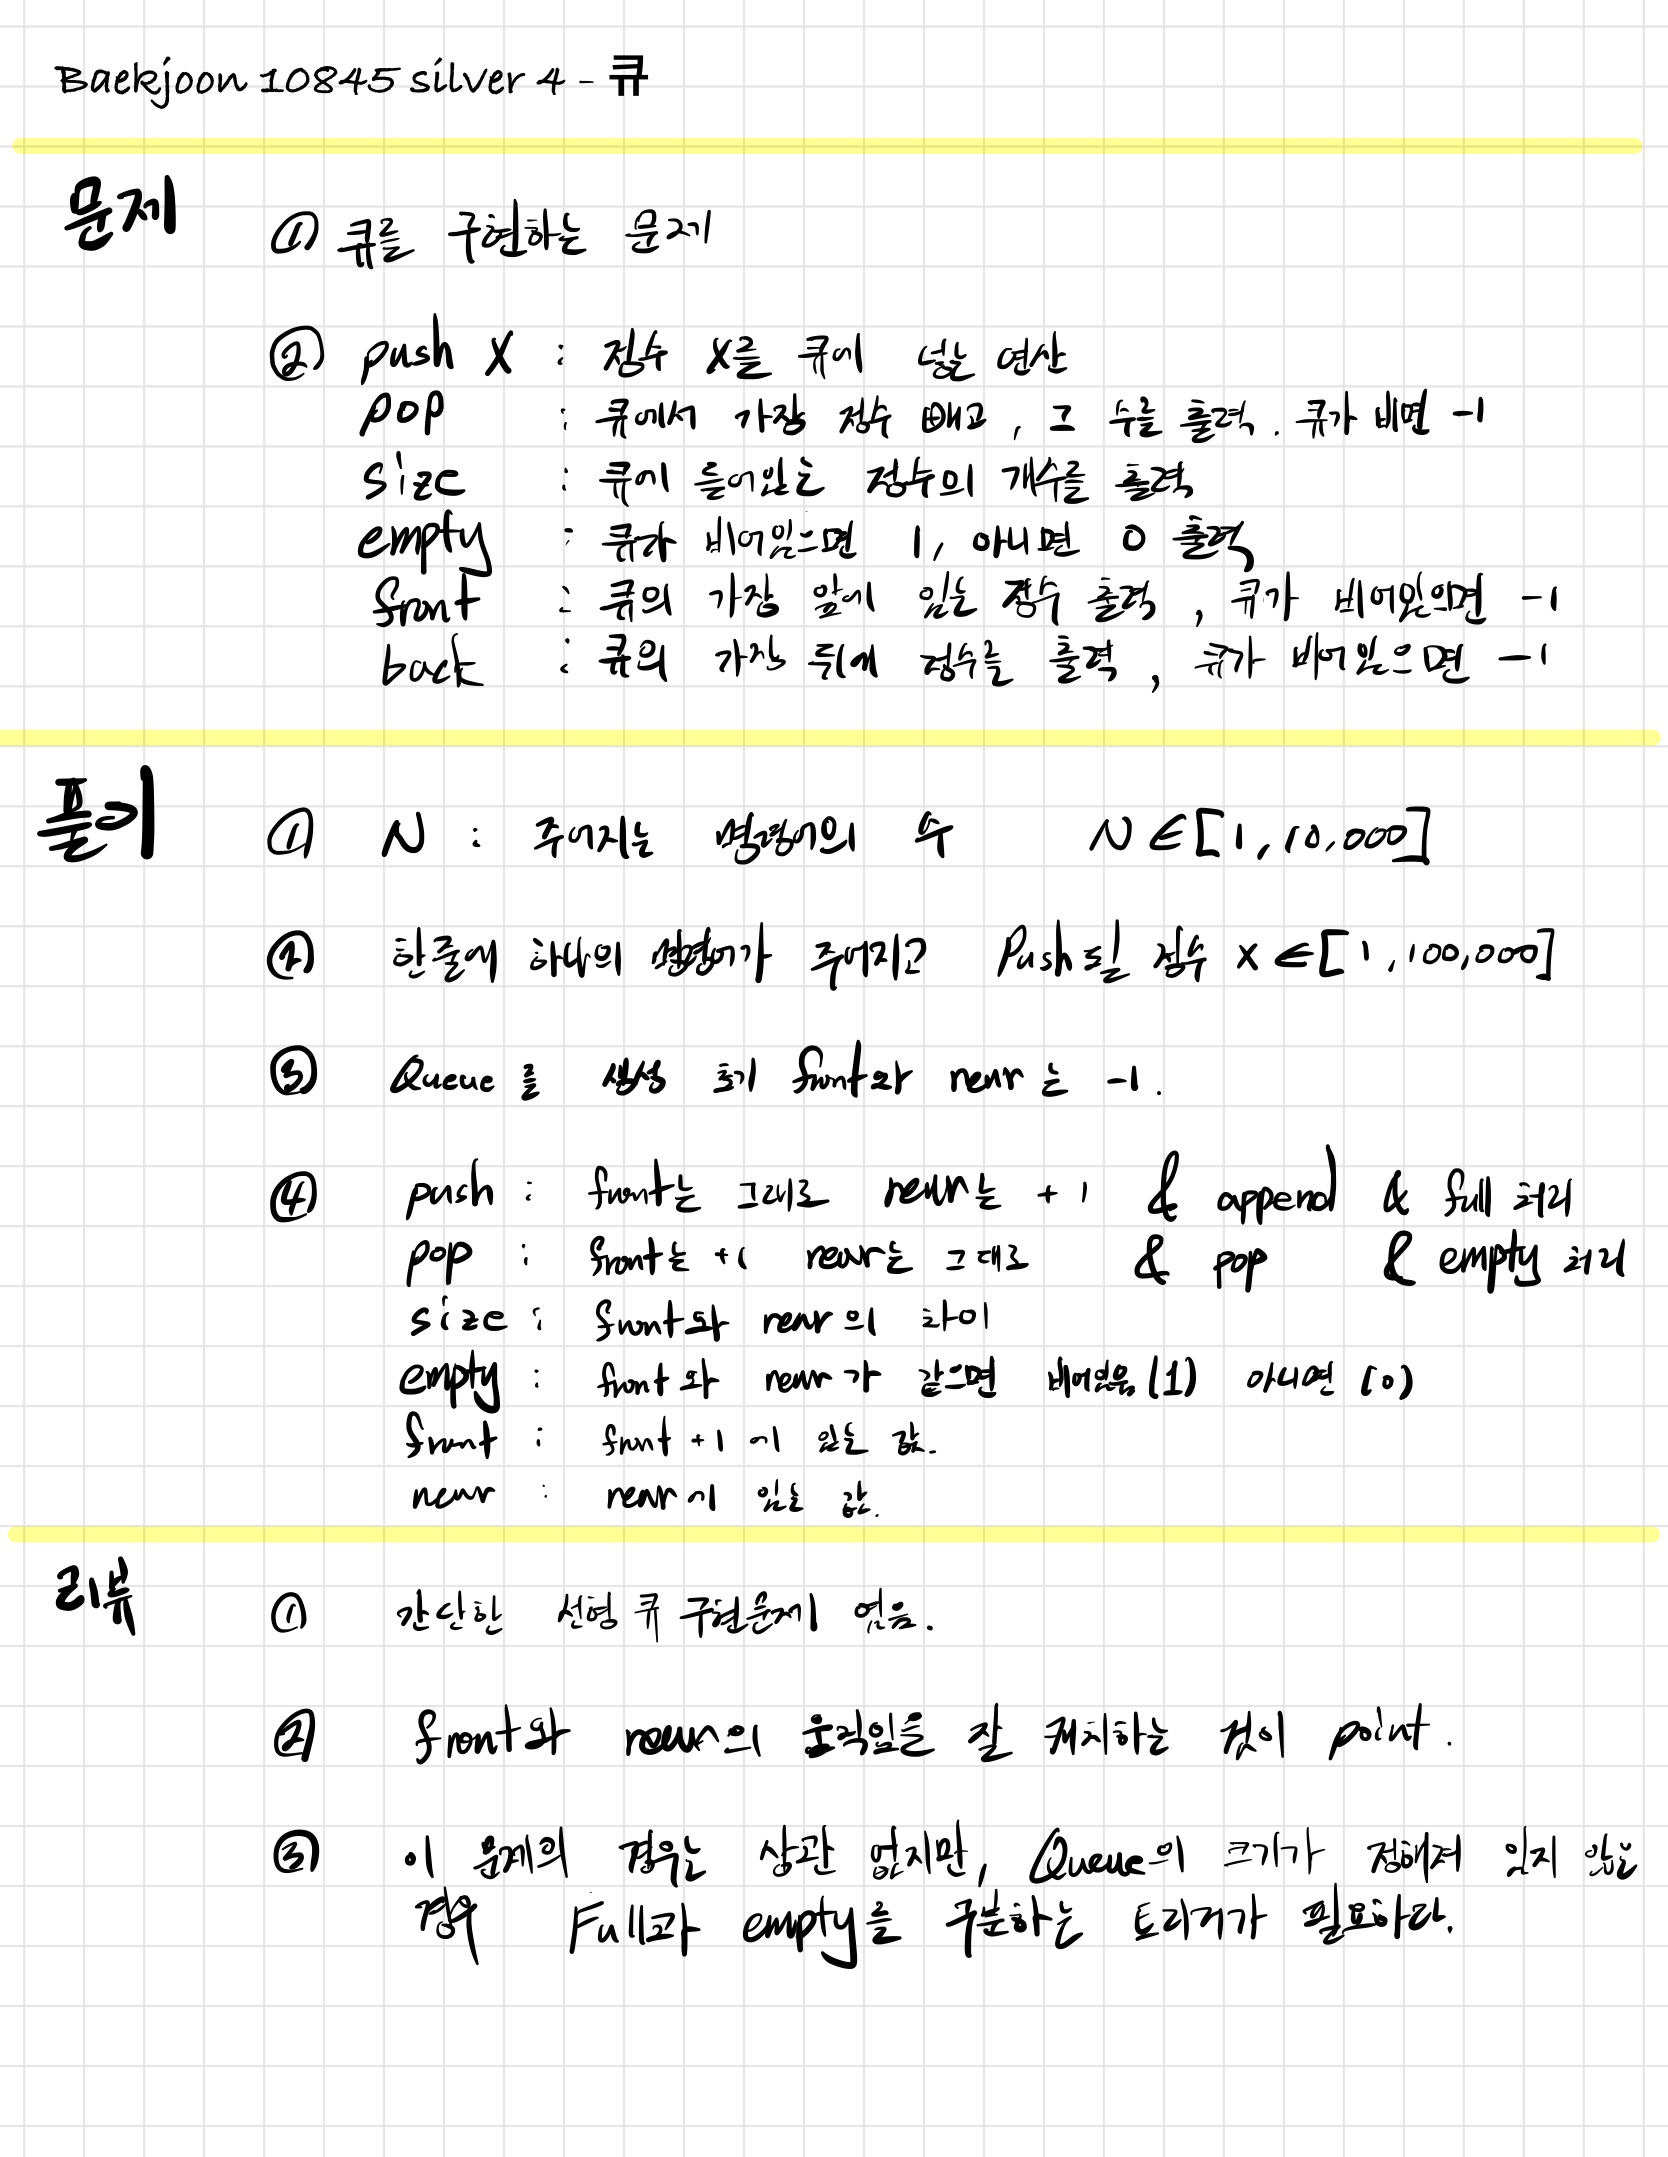 Baekjoon 10845 silver 4 - 큐
문제
① 큐를 구현하는 문제
② push X : 정수 X를 큐에 넣는 연산
pop : 큐에서 가장 정수 빼고, 그 수를 출력. 큐가 비면 -1
size : 큐에 들어있는 정수의 개수를 출력
empty : 큐가 비어있으면 1, 아니면 0 출력
front : 큐의 가장 앞에 있는 정수 출력, 큐가 비어있으면 -1
back : 큐의 가장 뒤에 정수를 출력, 큐가 비어있으면 -1
풀이
① N : 주어지는 명령어의 수 N ∈ [1, 10,000]
② 한줄에 하나의 명령어가 주어지고 Push 될 정수 x ∈ [1, 100,000]
③ Queue를 생성 초기 front와 rear는 -1.
④ push : front는 그대로 rear는 +1 & append & full 처리
pop : front는 +1 rear는 그대로 & pop & empty 처리
size : front와 rear의 차이
empty : front와 rear가 같으면 비어있음(1) 아니면 (0)
front : front +1에 있는 값.
rear : rear에 있는 값.
리뷰
① 간단한 선형 큐 구현문제 였음.
② front와 rear의 움직임을 잘 캐치하는 것이 point.
③ 이 문제의 경우는 상관 없지만, Queue의 크기가 정해져 있지 않은
경우 Full과 empty를 구분하는 트리거가 필요하다.